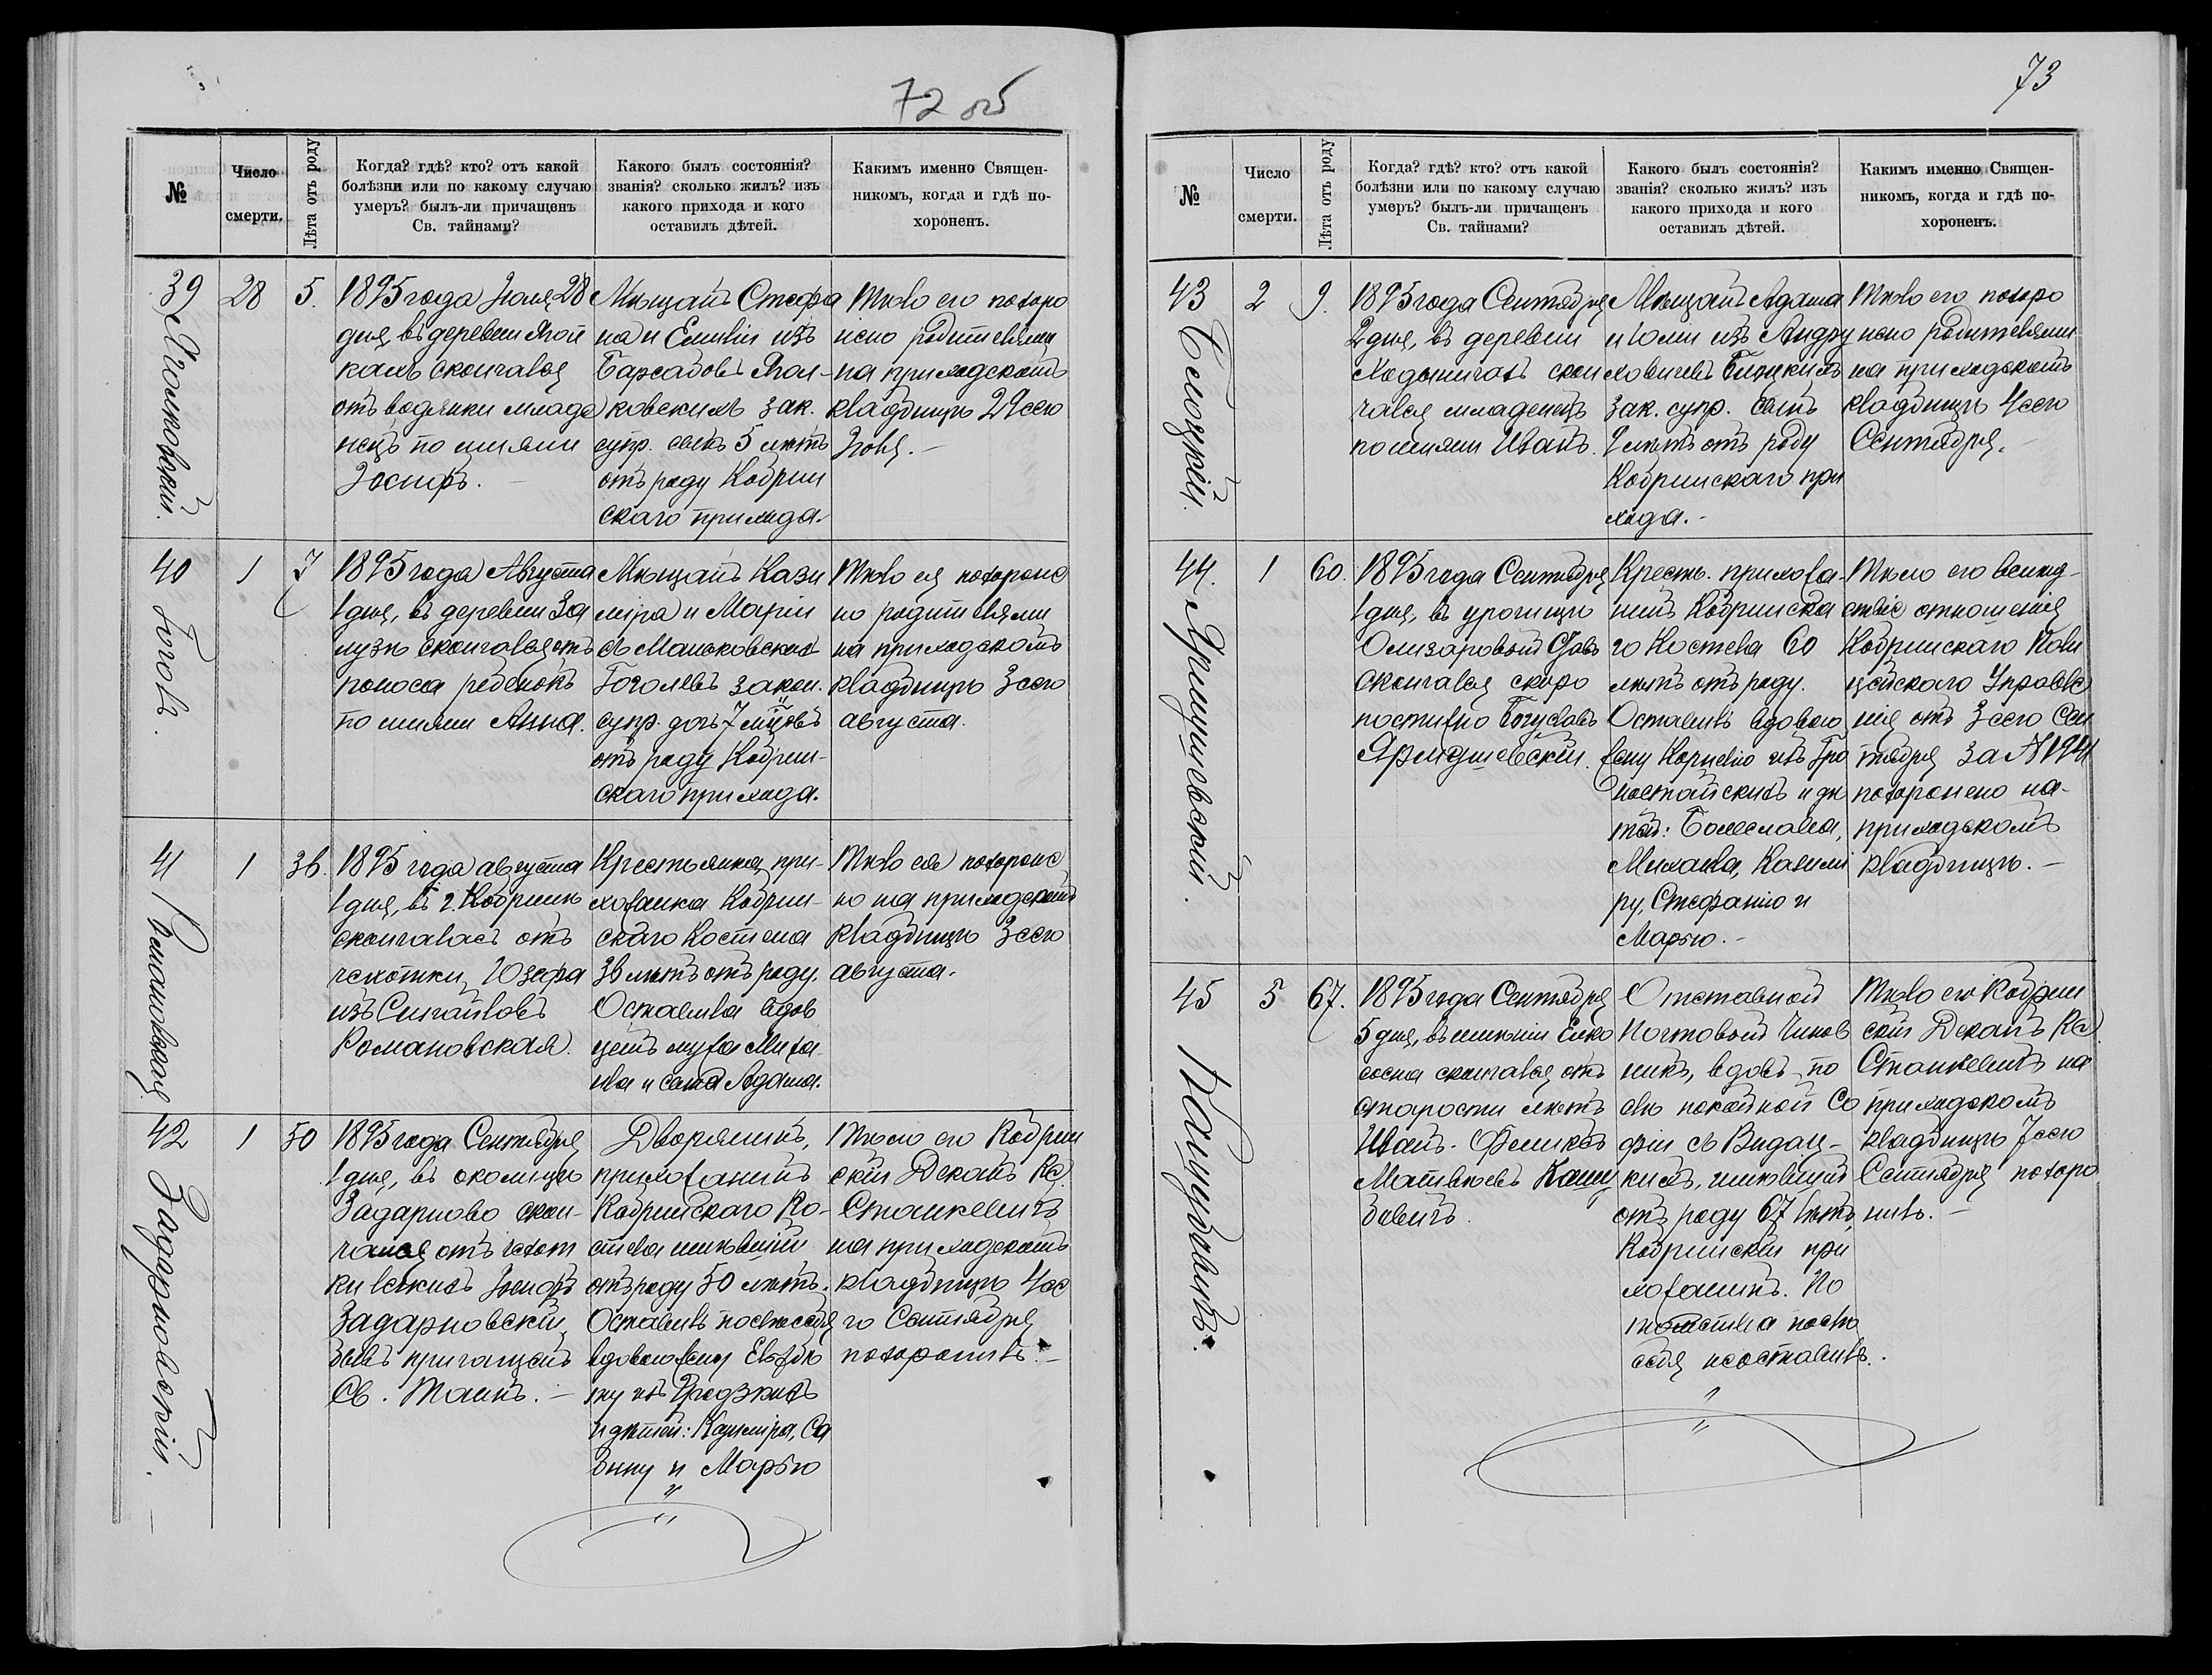 72 об
№
Число
смерти.
Лѣта отъ роду
Когда? гдѣ? кто? отъ какой
болѣзни или по какому случаю
умеръ? былъ-ли причащенъ
Св. тайнами?
Какого былъ состоянія?
званія? сколько жилъ? изъ
какого прихода и кого
оставилъ дѣтей.
Какимъ именно Священ-
никомъ, когда и гдѣ по-
хороненъ.
39
28
5.
1895 года Іюля 28
дня, въ деревни
скончался
отъ водянки младе
нецъ по имяни
Іосифъ.
Мѣщанъ Стефа
на и Емиліи изъ
ковскихъ зак.
супр. сынъ 5 лѣтъ
отъ роду Кобрин
скаго прихода.
Тѣло его похоро
нено родителями
на приходскомъ
кладбищѣ 29 сего
Іюля.
40
Гоголь.
1
7
1895 года Августа
1 дня, въ деревни За
лузѣ скончался отъ
поноса ребенокъ
по имяни Анна.
Мѣщанъ Кази
міра и Маріи
съ Маньковскихъ
Гоголевъ закон.
супр. дочь 7 мѣсяцовъ
отъ роду Кобрин-
скаго прихода.
Тѣло ея похороне
но родителями
на приходскомъ
кладбищѣ 3 сего
августа.
41
Романовская
1
36.
1895 года августа
1 дня, въ г. Кобринѣ
скончалась отъ
чехотки Юзефа
изъ
Романовская.
Крестьянка, при-
хожанка Кобрин-
скаго Костела
36 лѣтъ отъ роду.
Оставила вдов
цемъ мужа Миха
ила и сына Адама.
Тѣло ея похороне
но на приходскомъ
кладбищѣ 3 сего
августа.
42
Задарновскій.
1
50
1895 года Сентября
1 дня, въ околицѣ
Задарново скон-
чался отъ чехот
ки легкихъ Іосифъ
Задарновскій,
бывъ причащенъ
Св. Таинъ.
Дворянинъ,
прихожанинъ
Кобринскаго Ко-
стела имѣвшій
отъ роду 50 лѣтъ.
Оставилъ послѣ себя
вдовою жену
изъ
и дѣтей: Казиміра, Са
бину и Марью
Тѣло его Кобрин
скій Деканъ Кс.
Станкевичъ
на приходскомъ
кладбищѣ 4 се
го Сентября
похоронилъ.
73
№
Число
смерти.
Лѣта отъ роду
Когда? гдѣ? кто? отъ какой
болѣзни или по какому случаю
умеръ? былъ-ли причащенъ
Св. тайнами?
Какого былъ состоянія?
званія? сколько жилъ? изъ
какого прихода и кого
оставилъ дѣтей.
Какимъ именно Священ-
никомъ, когда и гдѣ по-
хороненъ.
43
2
9.
1895 года Сентября
2 дня, въ деревни
Ходыничахъ скон
чался младенецъ
по имяни Иванъ.
Мѣщанъ Адама
и Юліи изъ Андру
ховичевъ
зак. супр. сынъ
9 лѣтъ отъ роду
Кобринскаго при
хода.
Тѣло его похоро
нено родителями
на приходскомъ
кладбищѣ 4 сего
Сентября.
44.
Яримушевскій.
1
60.
1895 года Сентября
1 дня, въ урочищѣ
скончался скоро
постижно Богуславъ
Крестн. прихожа-
нинъ Кобринска
го Костела 60
лѣтъ отъ роду.
Оставилъ вдовою
жену Корнелію изъ Гро
ностайскихъ и дѣ
тей: Болеслава,
Михаила, Казими
ру, Стефанію и
Марью.
Тѣло его вслѣд-
ствіе отношенія
Кобринскаго Поли
цейскаго Управле
нія отъ 3 сего Сен
тября за №
похоронено на-
приходскомъ
кладбищѣ.
45
5
67.
1895 года Сентября
5 дня, въ имѣніи
скончался отъ
старости лѣтъ
Иванъ-Феликсъ
Матвѣевъ
Отставной
Почтовый Чинов
никъ, вдовъ по
слѣ покойной Со
фіи съ Видац-
кихъ, имѣвшій
отъ роду 67 лѣтъ,
Кобринскій при
хожанинъ. По
томства послѣ
себя неоставилъ.
Тѣло его Кобрин
скій Деканъ Кс.
Станкевичъ на
приходскомъ
кладбищѣ 7 сего
Сентября похоро
нилъ.